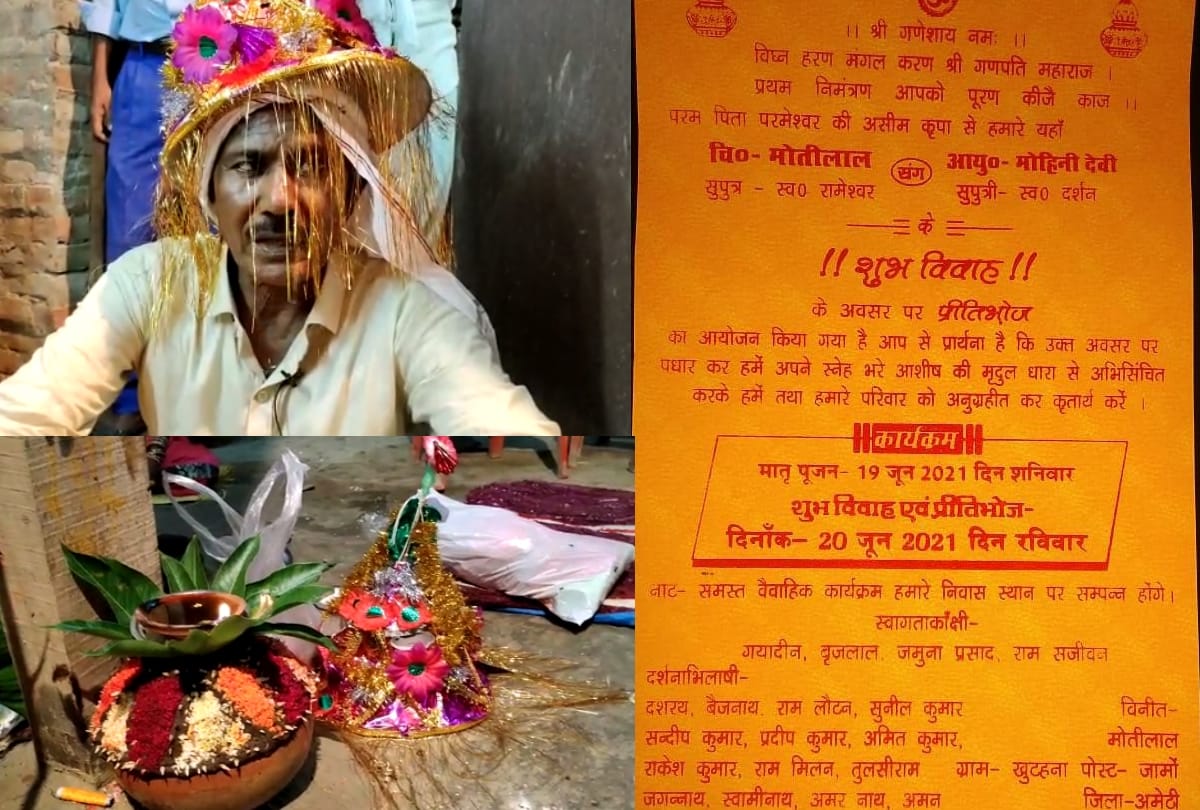 ।। श्री गणेशाय नमः ।।
विघ्न हरण मंगल करण श्री गणपति महाराज ।
प्रथम निमंत्रण आपको पूरण कीजै काज ।।
परम पिता परमेश्वर की असीम कृपा से हमारे यहाँ
चि०- मोतीलाल संग आयु०- मोहिनी देवी
सुपुत्र - स्व० रामेश्वर सुपुत्री- स्व० दर्शन
के
!! शुभ विवाह !!
के अवसर पर प्रीतिभोज
का आयोजन किया गया है आप से प्रार्थना है कि उक्त अवसर पर
पधार कर हमें अपने स्नेह भरे आशीष की मृदुल धारा से अभिसिंचित
करके हमें तथा हमारे परिवार को अनुग्रहीत कर कृतार्थ करें ।
कार्यक्रम
मातृ पूजन- 19 जून 2021 दिन शनिवार
शुभ विवाह एवं प्रीतिभोज-
दिनाँक- 20 जून 2021 दिन रविवार
नाट- समस्त वैवाहिक कार्यक्रम हमारे निवास स्थान पर सम्पन्न होंगे।
स्वागताकाँक्षी-
गयादीन, बृजलाल, जमुना प्रसाद, राम सजीवन
दर्शनाभिलाषी-
दशरथ, बैजनाथ, राम लौटन, सुनील कुमार विनीत-
सन्दीप कुमार, प्रदीप कुमार, अमित कुमार, मोतीलाल
राकेश कुमार, राम मिलन, तुलसीराम ग्राम- खुटहना पोस्ट- जामों
जगन्नाथ, स्वामीनाथ, अमर नाथ, अमन जिला-अमेठी